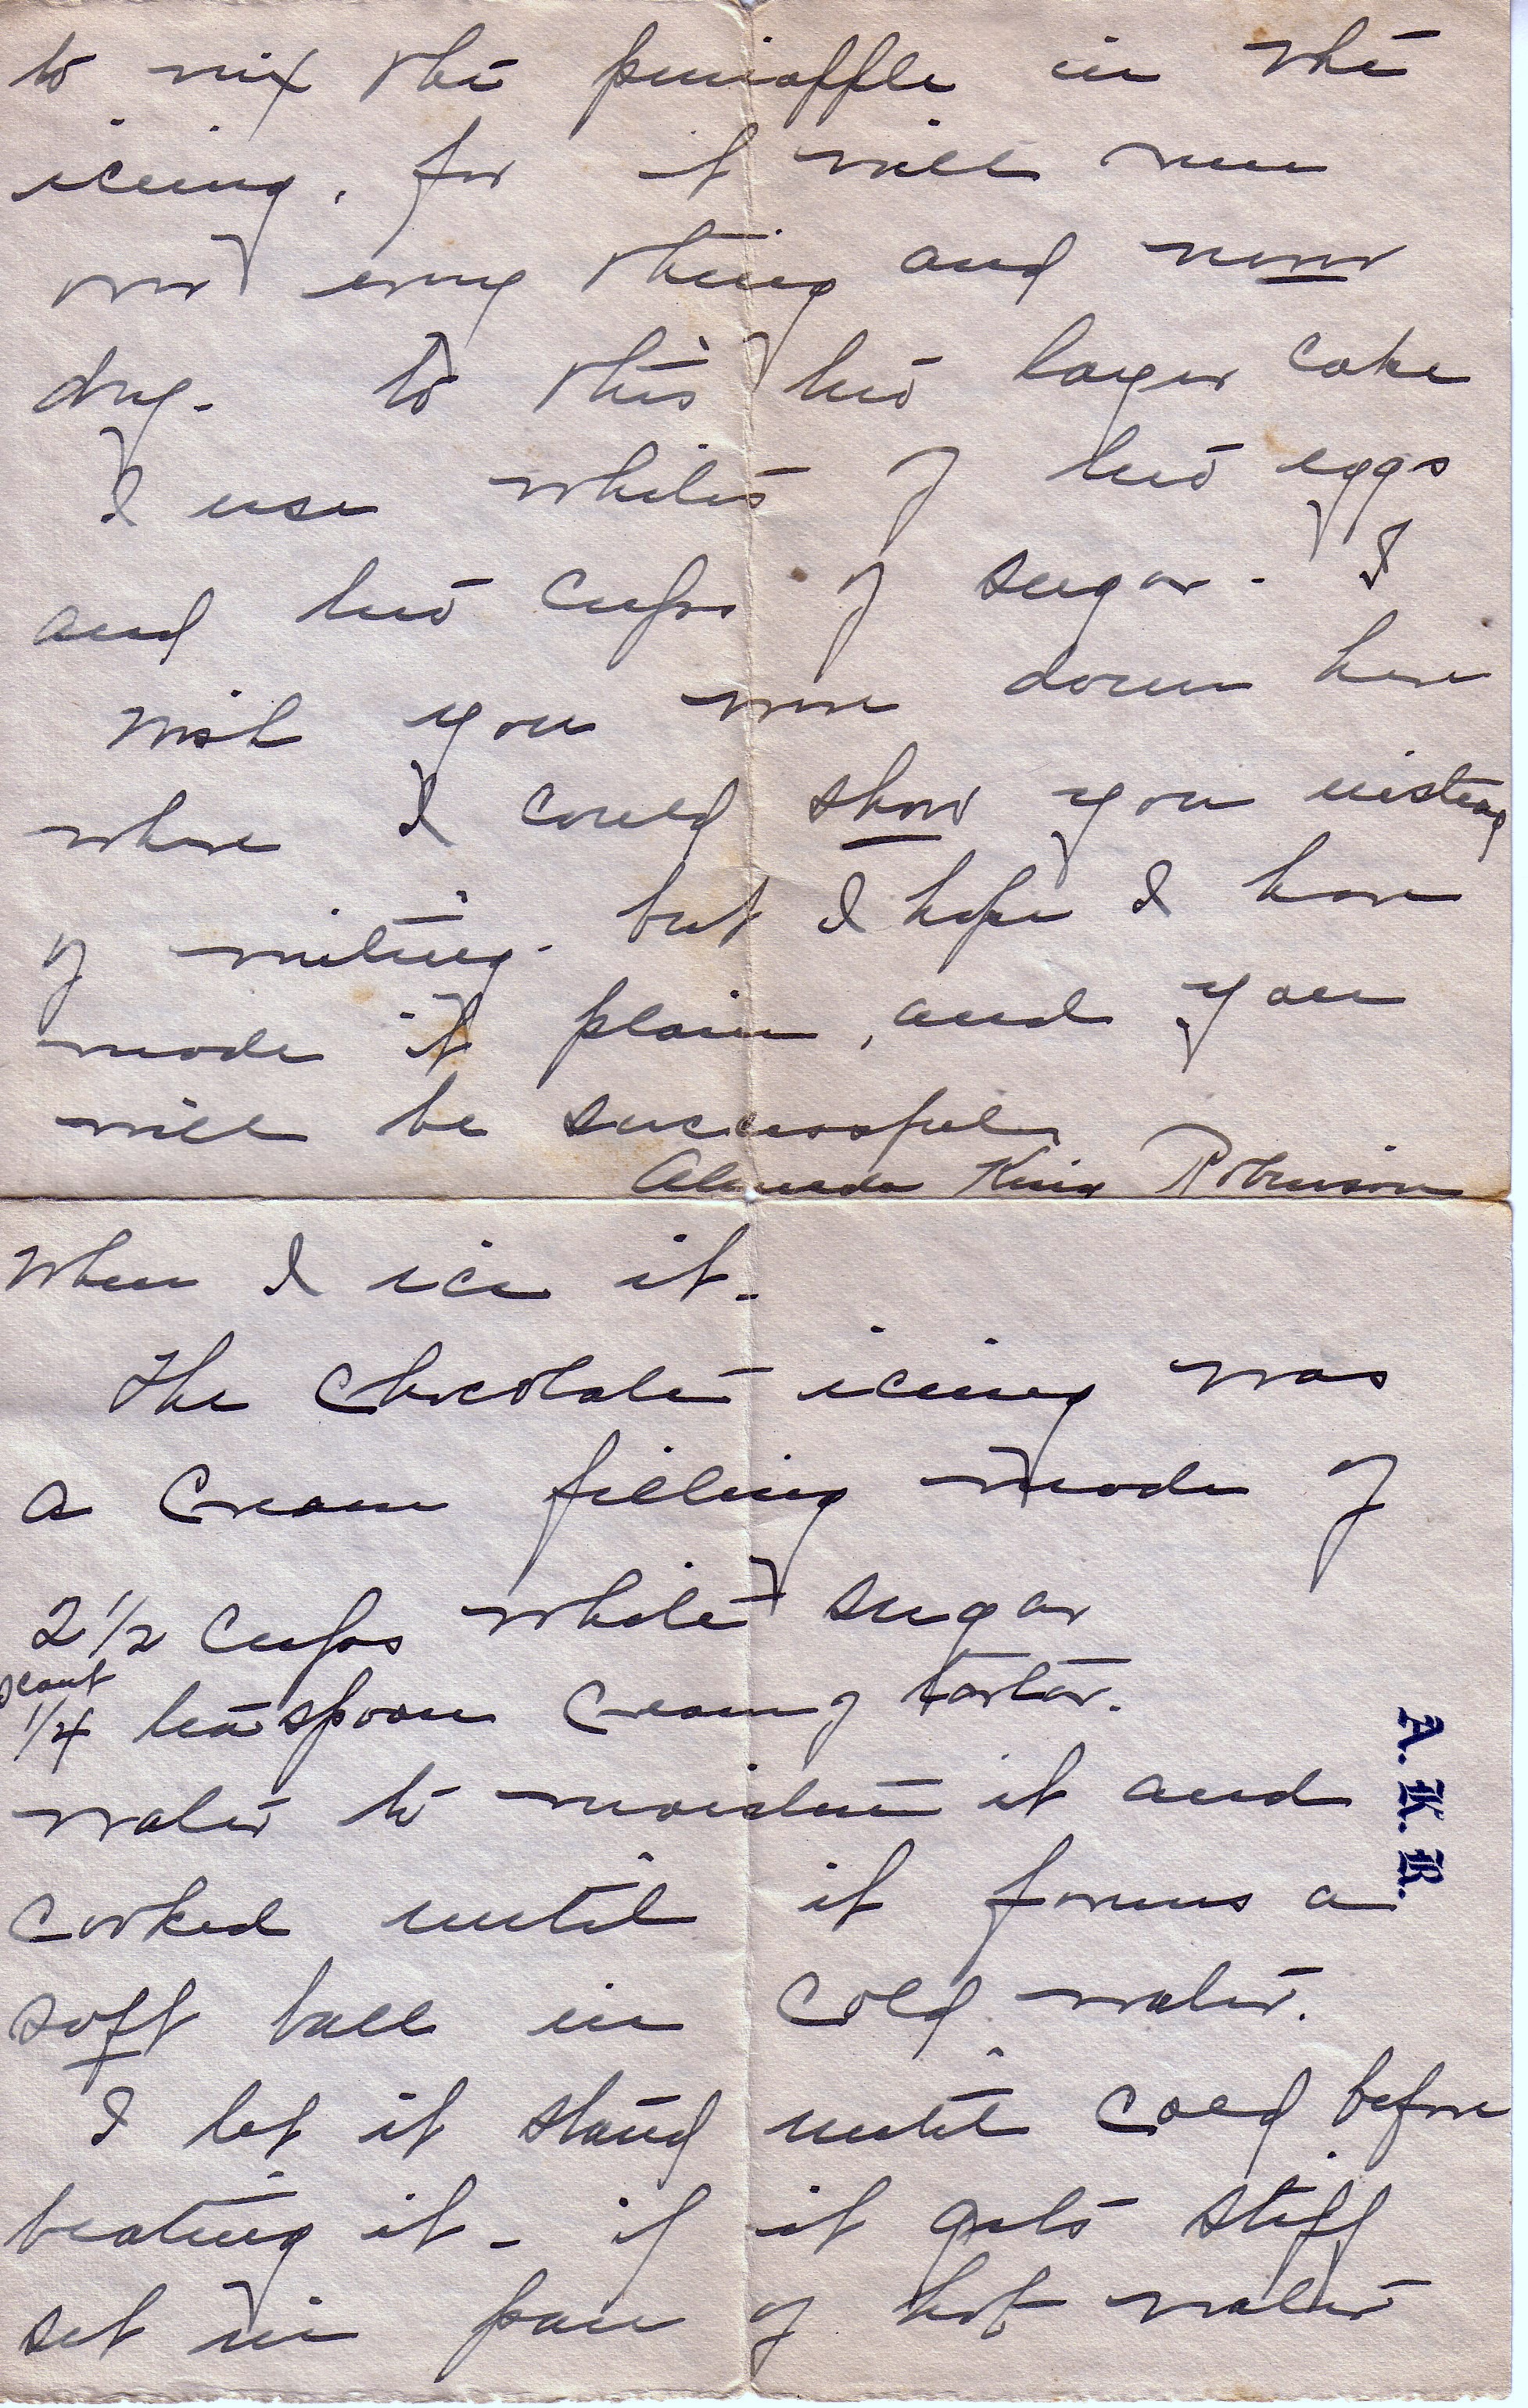 to mix the pineapple in the
icing, for it will run
over every thing and never
dry. to this two layer cake
I use whites of two eggs
and two cups of sugar. I
wish you were down here
where I could show you instead
of writing. but I hope I have
made it plain, and you
will be successful
Almeda King Robinson
When I ice it.
The chocolate icing was
a cream filling made of
2 1/2 cups white sugar
scant
1/4 teaspoon cream of tartar.
water to moisten it and
cooked until it forms a
soft ball in cold water.
I let it stand until cold before
beating it - if it gets stiff
set in pan of hot water
A. K. R.